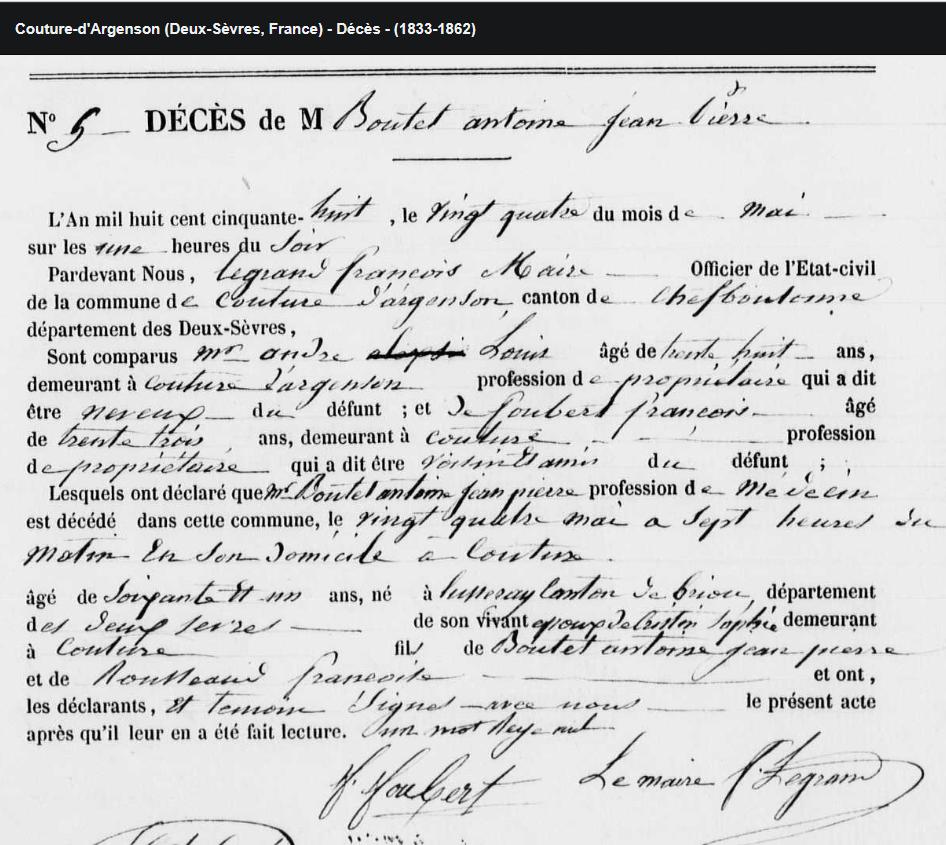 Couture-d'Argenson (Deux-Sèvres, France) - Décès - (1833-1862)
N° 5 DÉCÈS de M Boutet antoine jean Pierre
L'An mil huit cent cinquante-huit, le vingt quatre du mois de mai
sur les une heures du soir
Pardevant Nous, Legrand françois Maire Officier de l'Etat-civil
de la commune de Couture d'argenson, canton de chefboutonne
département des Deux-Sèvres,
Sont comparus mr andre Louis âgé de trente huit ans,
demeurant à Couture d'argenson profession de propriétaire qui a dit
être neveux du défunt ; et de Joubert françois âgé
de trente trois ans, demeurant à couture profession
de propriétaire qui a dit être voisin et amis du défunt ;
Lesquels ont déclaré que mr Boutet antoine Jean pierre profession de Médecin
est décédé dans cette commune, le vingt quatre mai a sept heures du
matin En son domicile a Couture
âgé de soixante et un ans, né à lusseray Canton de briou, département
des deux sevres de son vivant epoux de Sophie demeurant
à Couture fils de Boutet antoine jean pierre
et de Rousseaud francoise et ont,
les déclarants, et temoin signés avec nous le présent acte
après qu'il leur en a été fait lecture. un mot nul
f Joubert Le maire f Legrand